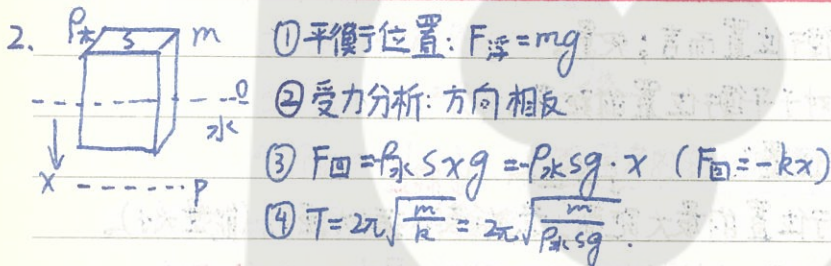 2. ρ木 S m ①平衡位置: F浮=mg
0 水 ②受力分析: 方向相反
x P ③ F回=ρ水Sxg=-ρ水sg·x (F回=-kx)
④ T=2π√(m/k)=2π√(m/ρ水sg).